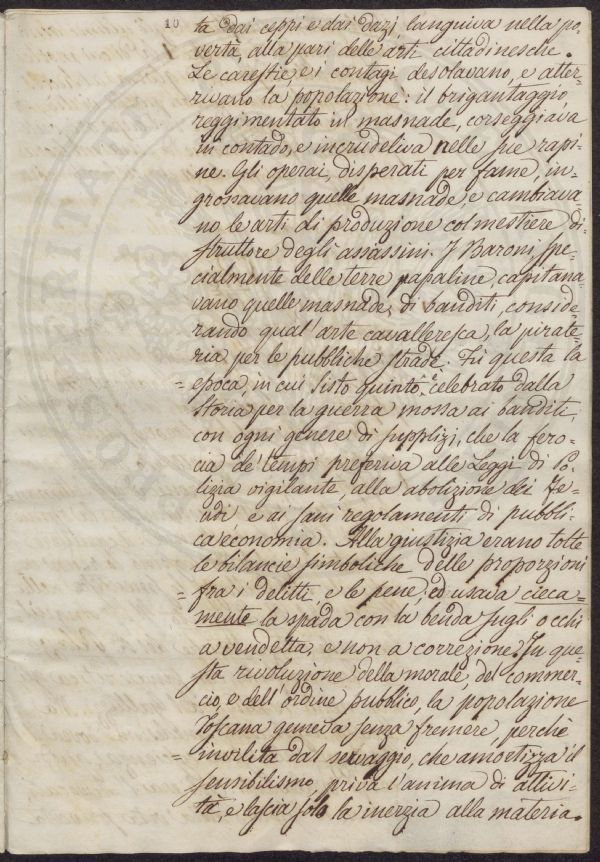 10
ta dai ceppi e dai dazi, languiva nella po-
vertà, alla pari delle arti cittadinesche.
Le carestie, e i contagi desolavano, e atter-
rivano la popolazione: il brigantaggio
reggimentato in masnade, corseggiava
in contado, e incrudeliva nelle sue rapi-
ne. Gli operai, disperati per fame, in-
grossavano quelle masnade, e cambiava-
no le arti di produzione col mestiere di-
struttore degli assassini. I Baroni spe-
cialmente delle terre papaline, capitana-
vano quelle masnade, di banditi, conside-
rando qual'arte cavalleresca, la pirate-
ria per le pubbliche strade. Fù questa la
= epoca, in cui Sisto quinto, celebrato dalla
Storia per la guerra mossa ai banditi,
con ogni genere di supplizi, che la fero-
cia de' tempi preferiva alle Leggi di Po-
lizia vigilante, alla abolizione dei Fe-
udi, e ai sani regolamenti di pubbli-
ca economia. Alla giustizia erano tolte
le bilancie simboliche delle proporzioni
= fra i delitti, e le pene, ed usava cieca-
mente la spada con la benda sugli occhi
a vendetta, e non a correzione. In que-
sta rivoluzione della morale, del commer-
cio, e dell'ordine pubblico, la popolazione
Toscana gemeva senza fremere, perchè
= invilita dal servaggio, che amortizza il
sensibilismo, priva l'anima di attivi-
tà, e lascia solo la inerzia alla materia.